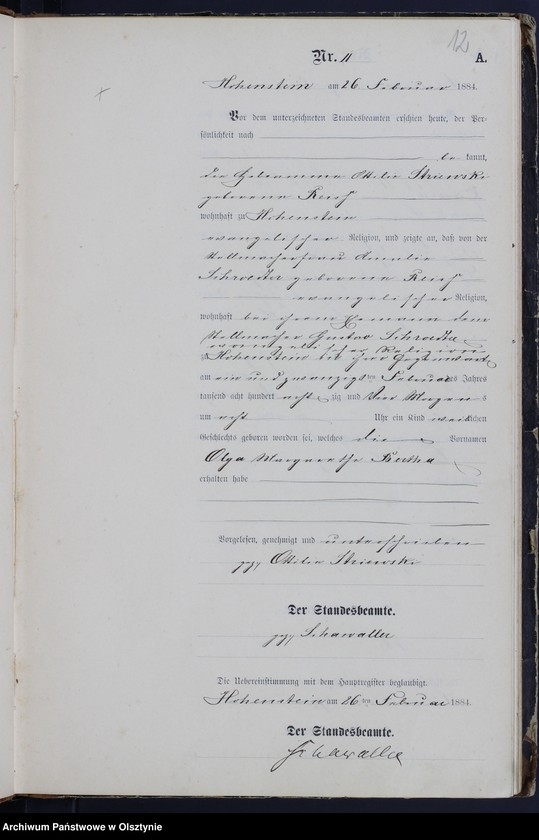 12
Nr. 11 A.
Hohenstein am 26 Februar 1884.
Vor dem unterzeichneten Standesbeamten erschien heute, der Per-
sönlichkeit nach
be kannt,
die Hebeamme Ottilie Striewski
geborene Reiß
wohnhaft zu Hohenstein
evangelischer Religion, und zeigte an, daß von der
Stellmacherfrau Amalie
Schroedter geborene Reiß
evangelischer Religion,
wohnhaft bei ihrem Ehemann dem
Stellmacher Gustav Schroedter
evangelischer Religion
zu Hohenstein in ihrer Gegenwart
am ein und zwanzigsten Februar des Jahres
tausend acht hundert acht zig und vier Morgens
um acht Uhr ein Kind weiblichen
Geschlechts geboren worden sei, welches die Vornamen
Olga Margarethe Bertha
erhalten habe
Vorgelesen, genehmigt und unterschrieben
gez. Ottilie Striewski
Der Standesbeamte.
gez. Schawaller
Die Uebereinstimmung mit dem Hauptregister beglaubigt.
Hohenstein am 26 ten Februar 1884.
Der Standesbeamte.
Schawaller
Archiwum Państwowe w Olsztynie